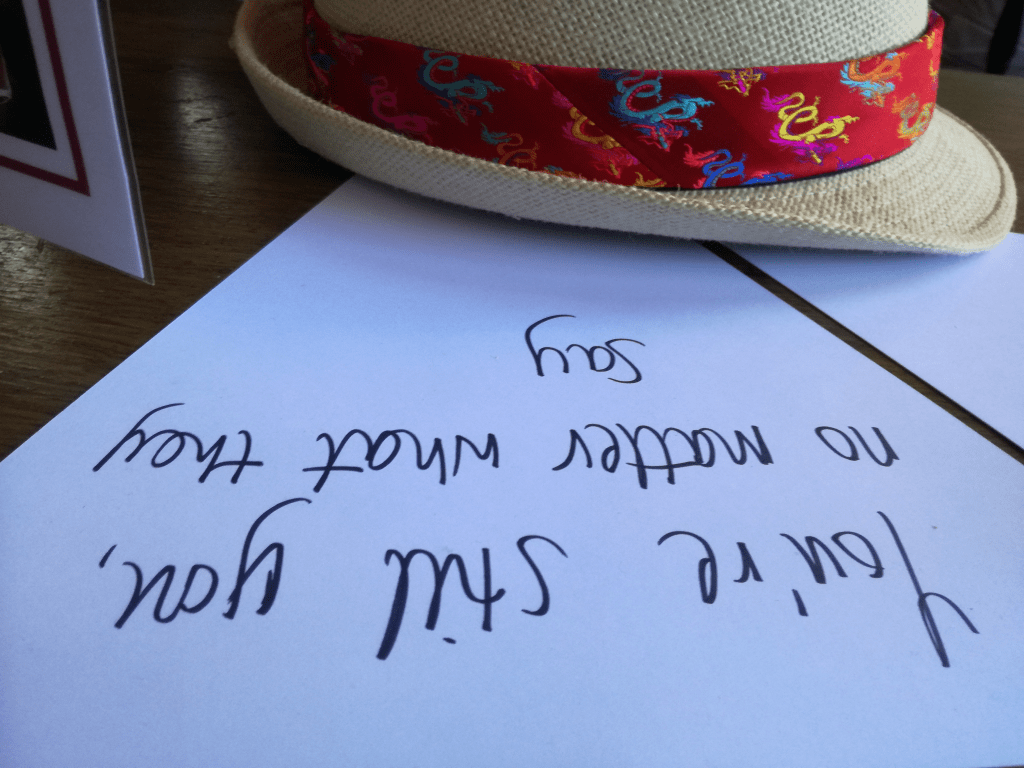 You're still you,
no matter what they
say